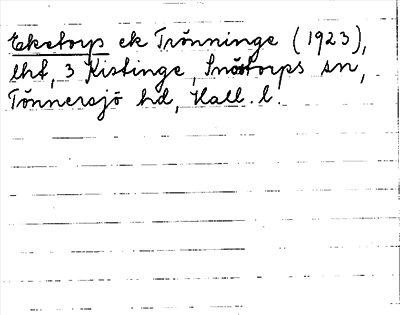 Eketorp ek Trönninge (1923),
lht, 3 Kistinge, Snöstorps sn,
Tönnersjö hd, Hall. l.